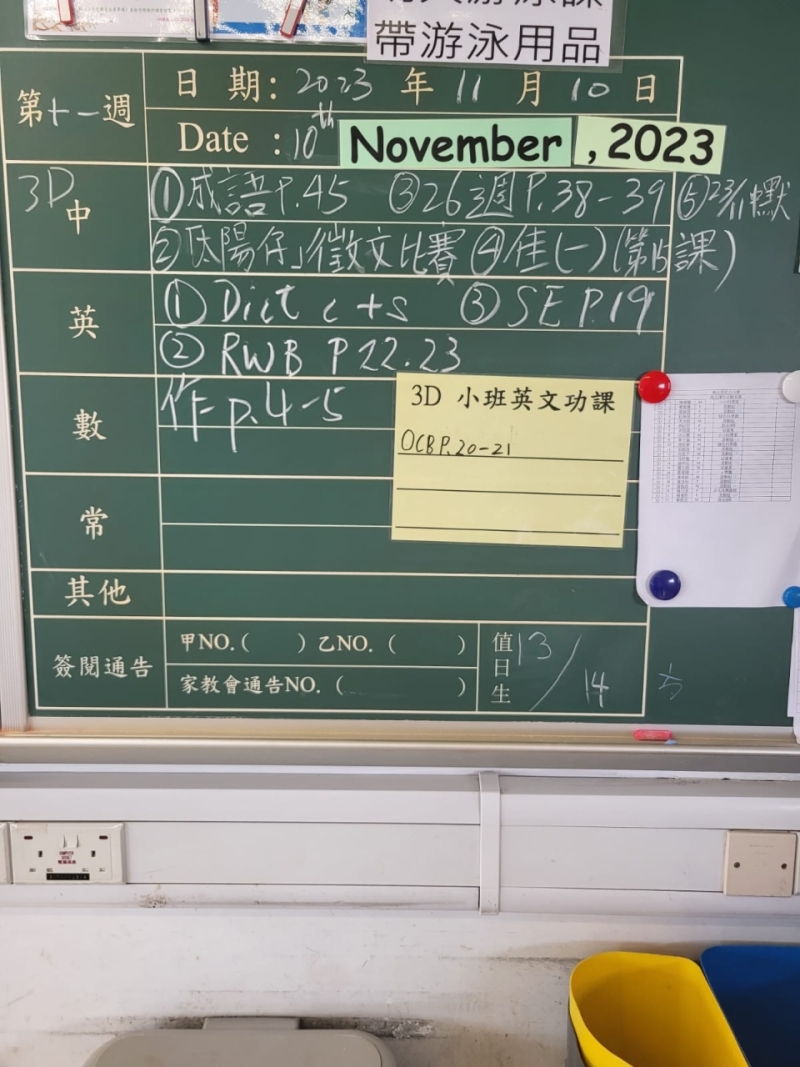 帶游泳用品
第十一週
日期: 2023 年 11 月 10 日
Date : 10th November , 2023
3D
中
① 成語 P.45 ③ 26週 P.38-39 ⑤ 23/11默
② 「太陽仔」徵文比賽 ④ 佳(一)(第15課)
英
① Dict c+s ③ SE P.19
② RWB P 22.23
數
作 p.4-5
3D 小班英文功課
OCB P.20-21
常
其他
簽閱通告
甲NO.( ) 乙NO. ( )
家教會通告NO. ( )
值日生
13/14